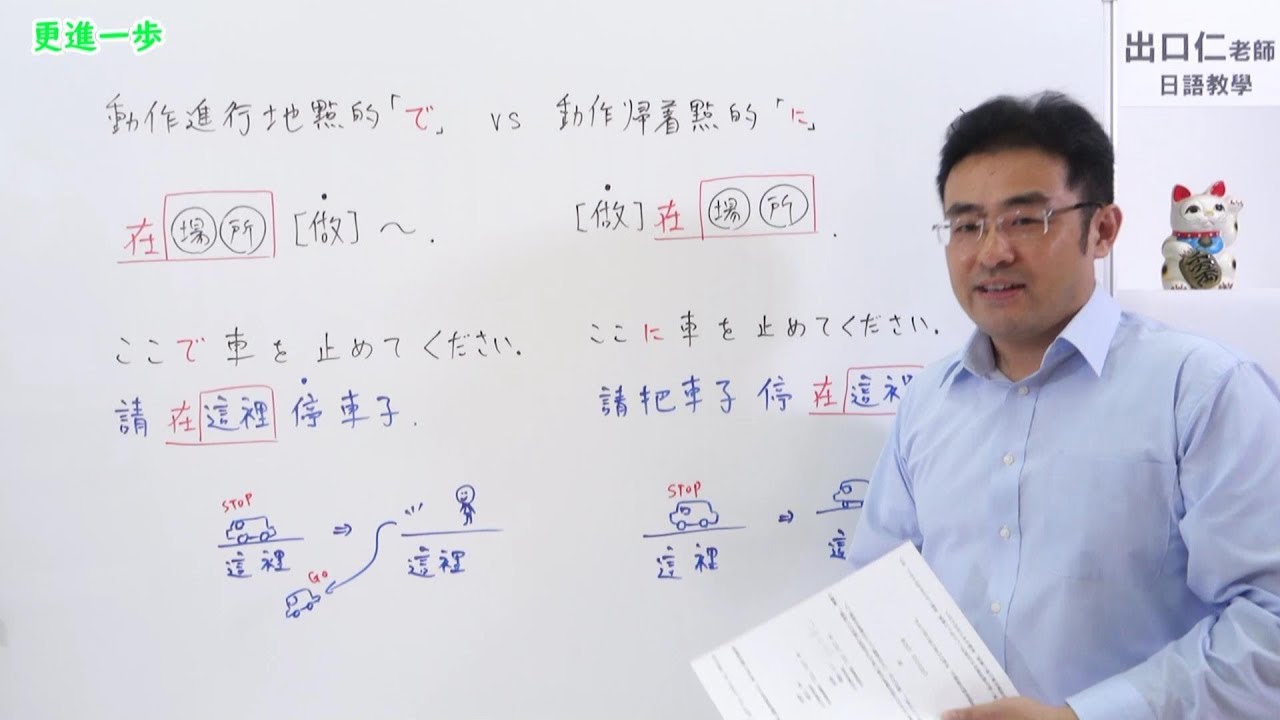 更進一步
出口仁老師
日語教學
動作進行地點的「で」 vs 動作帰着點的「に」
在 場所 [做]~.
[做] 在 場所.
ここで車を止めてください.
ここに車を止めてください.
請在這裡停車子.
請把車子停在這裡
STOP
這裡
⇒
GO
這裡
STOP
這裡
⇒
這